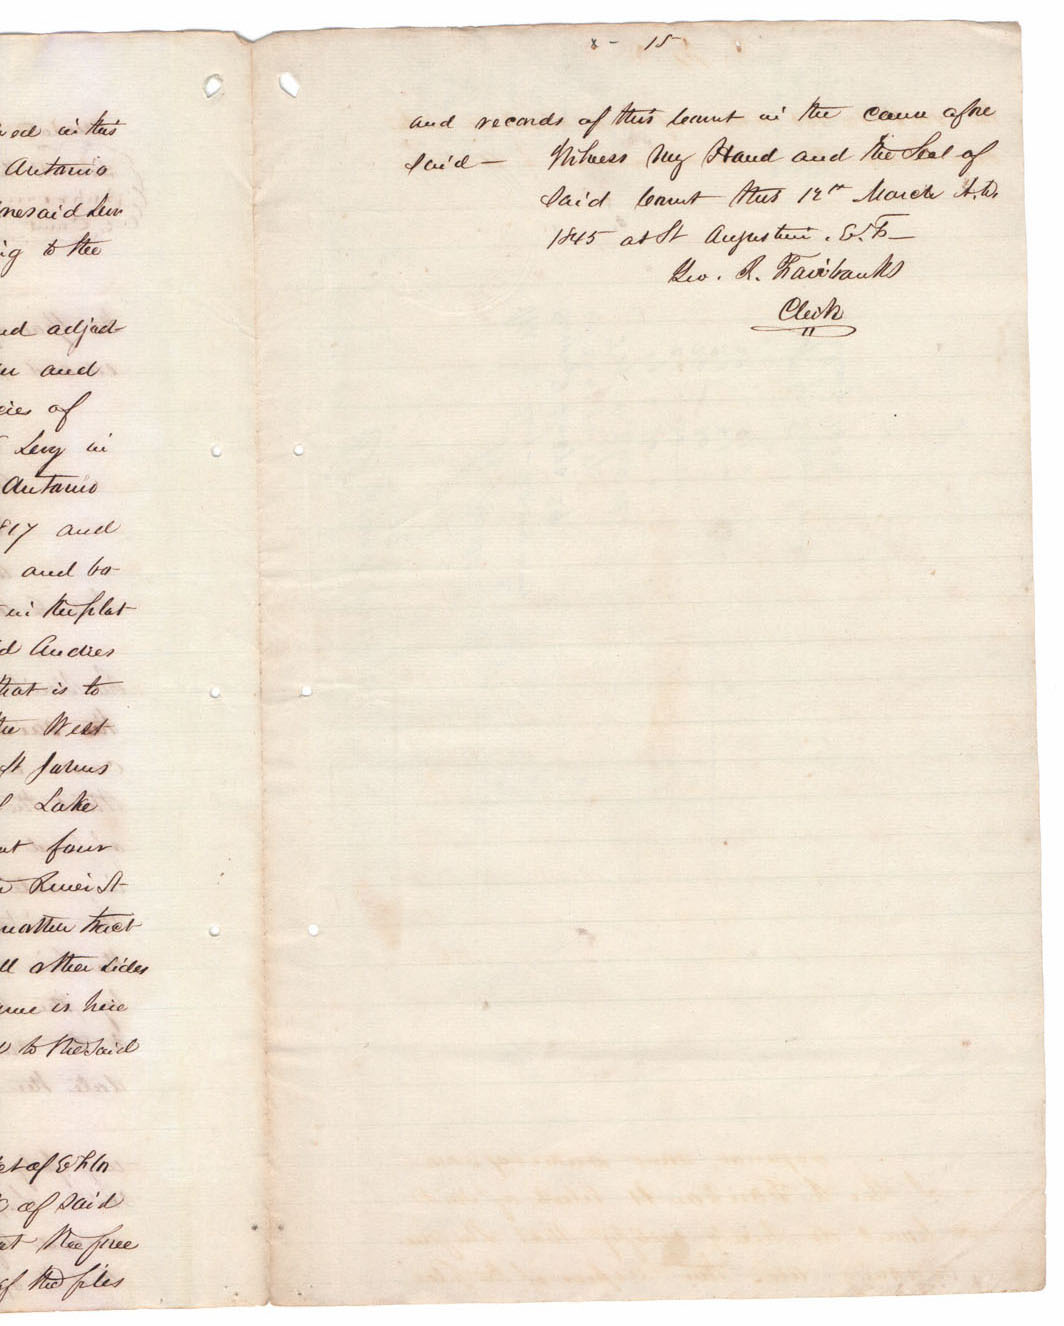 od in this
Antonio
oresaid Sur
ing to the
ed adjud
and
cies of
Levy in
Antonio
1817 and
and bo
in the plat
d Andres
that is to
the West
St Johns
Lake
at four
River St
another tract
all other sides
ame is here
to the said
of E Flo
of said
at the fore
of the files
8 - 15
and records of this Court in the cause afore
said — Witness My Hand and the Seal of
said Court this 12th March A.D.
1845 at St Augustine. E. F. —
Geo. R. Fairbanks
Clerk